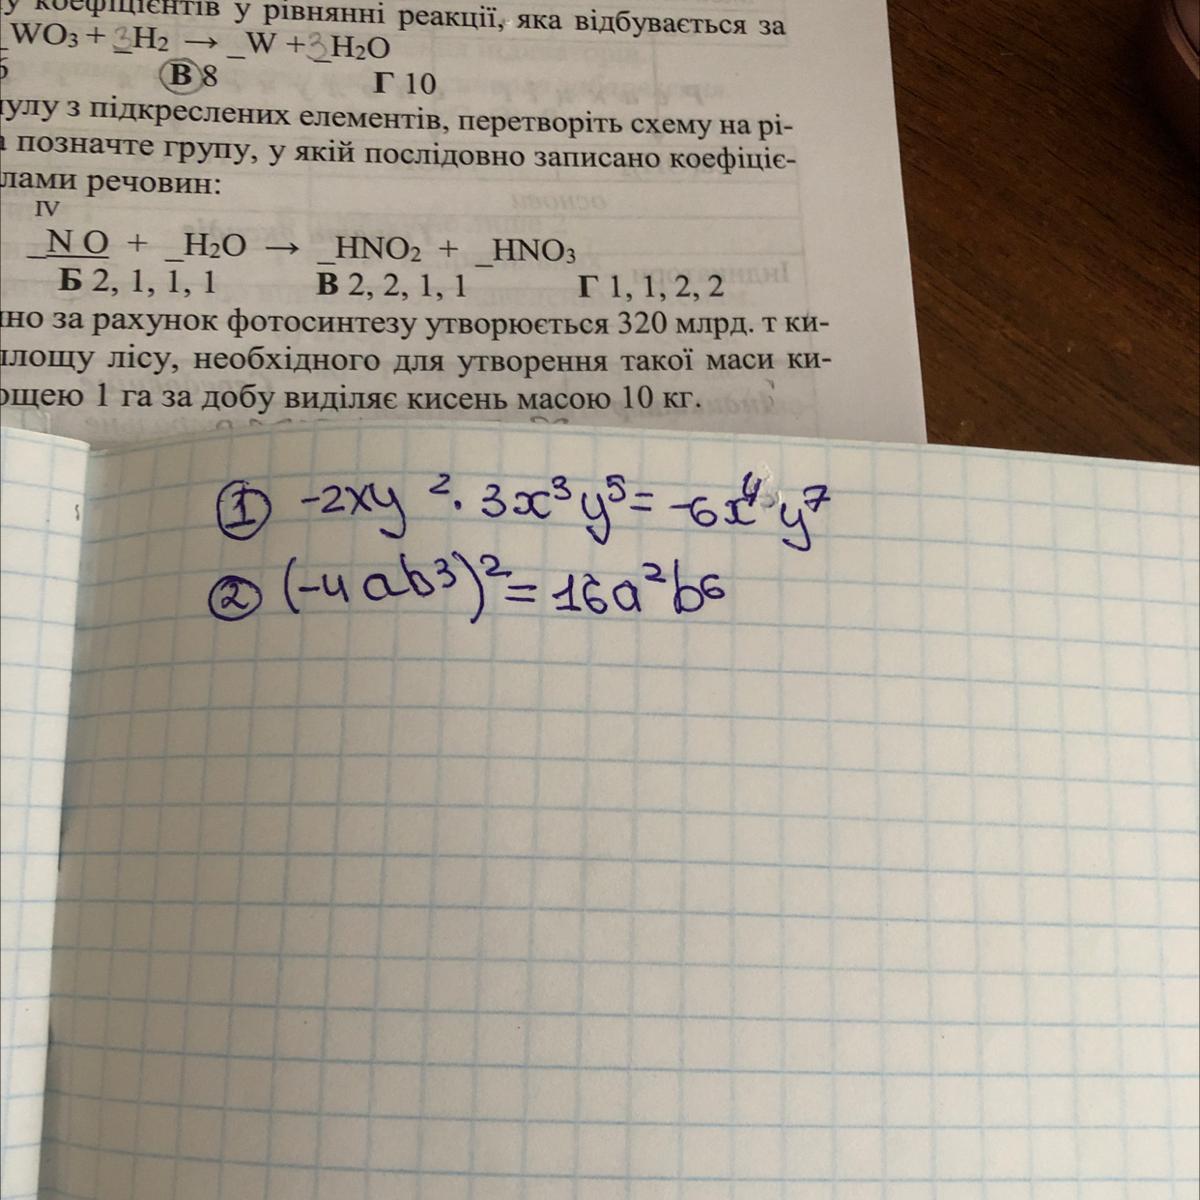 коефіцієнтів у рівнянні реакції, яка відбувається за
_WO₃ + 3H₂ → _W + 3H₂O
В 8 Г 10
з підкреслених елементів, перетворіть схему на рі-
позначте групу, у якій послідовно записано коефіціє-
речовин:
IV
_N O + _H₂O → _HNO₂ + _HNO₃
Б 2, 1, 1, 1 В 2, 2, 1, 1 Г 1, 1, 2, 2
за рахунок фотосинтезу утворюється 320 млрд. т ки-
площу лісу, необхідного для утворення такої маси ки-
1 га за добу виділяє кисень масою 10 кг.
① -2xy² · 3x³y⁵ = -6x⁴y⁷
② (-4ab³)² = 16a²b⁶